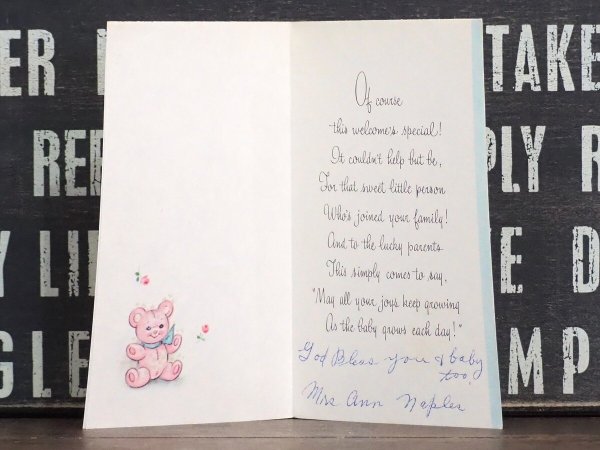 ER
TAKE
REE
PLY R
Y LI
E D
GLE
MP
Of course
this welcome's special!
It couldn't help but be,
For that sweet little person
Who's joined your family!
And to the lucky parents
This simply comes to say,
"May all your joys keep growing
As the baby grows each day!"
God Bless you & baby
too!
Mrs Ann Naples